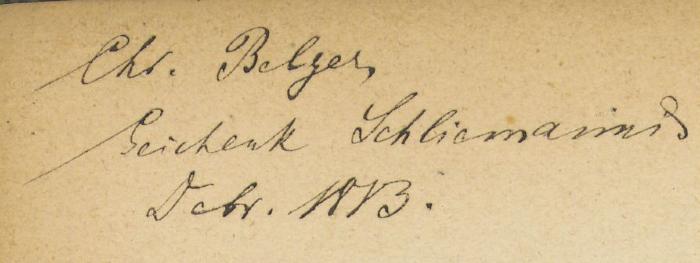 Chr. Belger,
Geschenk Schliemanns
Dcbr. 1883.